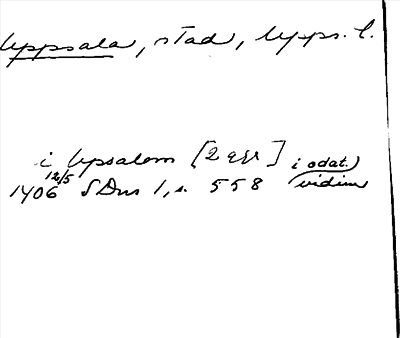 Uppsala, stad, Upps. l.
i Upsalom [2 ggr] i odat. vidim
1406 12/5 SDns 1, s. 558